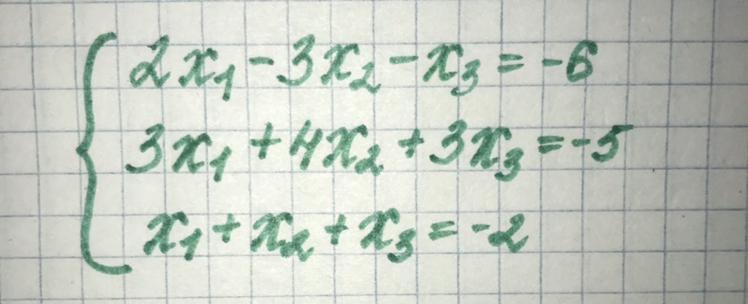 2x₁-3x₂-x₃=-6
3x₁+4x₂+3x₃=-5
x₁+x₂+x₃=-2